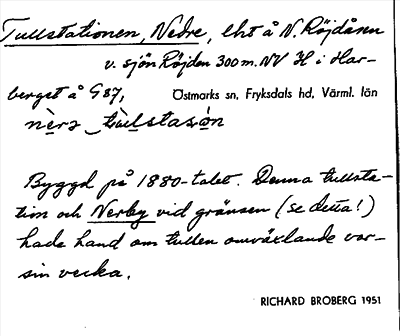 Tullstationen, Nedre, lht å N. Röjdåsen
v. sjön Röjden 300 m. NV H i Har-
berget å G 87, Östmarks sn, Fryksdals hd, Värml. län
nèrə tùlstaʃón
Byggd på 1880-talet. Denna tullsta-
tion och Nerby vid gränsen (se detta!)
hade hand om tullen omväxlande var-
sin vecka.
RICHARD BROBERG 1951